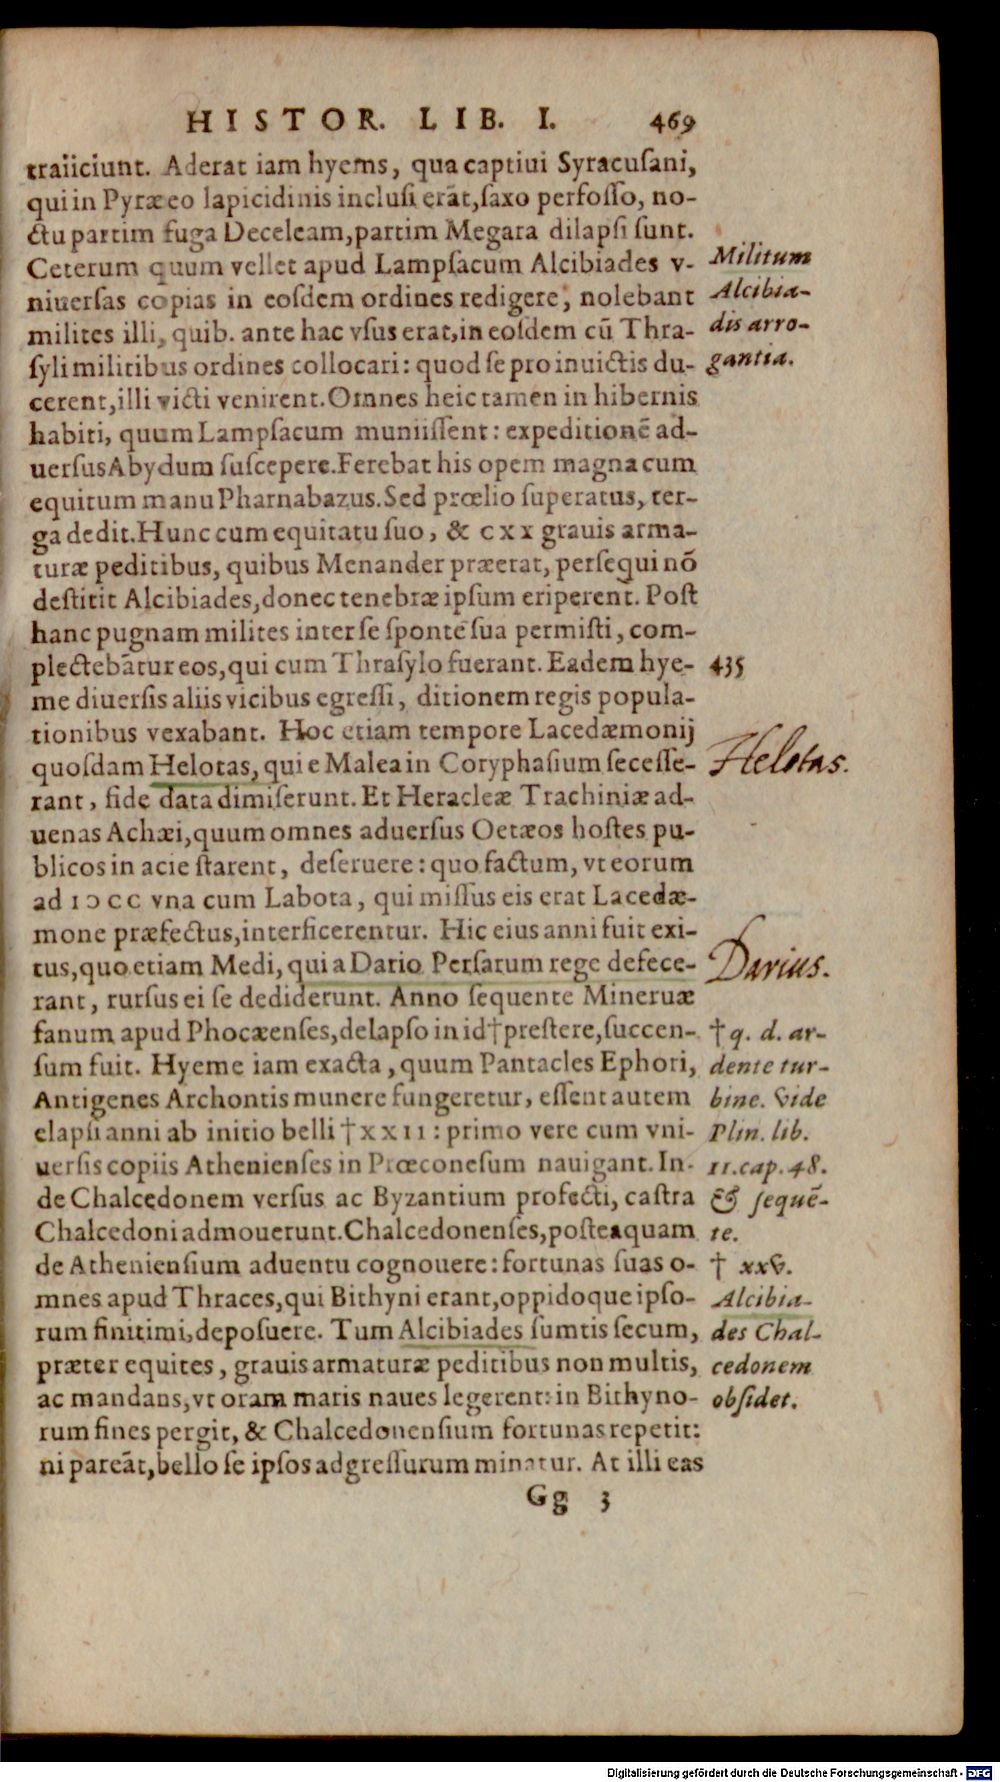 HISTOR. LIB. I. 469
traiiciunt. Aderat iam hyems, qua captiui Syracuſani,
qui in Pyræeo lapicidinis incluſi erãt, ſaxo perfoſſo, no-
ctu partim fuga Deceleam, partim Megara dilapſi ſunt.
Ceterum quum vellet apud Lampſacum Alcibiades v-
niuerſas copias in eoſdem ordines redigere, nolebant
milites illi, quib. ante hac vſus erat, in eoſdem cũ Thra-
ſyli militibus ordines collocari: quod ſe pro inuictis du-
cerent, illi victi venirent. Omnes heic tamen in hibernis
habiti, quum Lampſacum muniiſſent: expeditionẽ ad-
uerſus Abydum ſuſcepere. Ferebat his opem magna cum
equitum manu Pharnabazus. Sed prœlio ſuperatus, ter-
ga dedit. Hunc cum equitatu ſuo, & cxx grauis arma-
turæ peditibus, quibus Menander præerat, perſequi nõ
deſtitit Alcibiades, donec tenebræ ipſum eriperent. Poſt
hanc pugnam milites inter ſe ſponte ſua permiſti, com-
plectebãtur eos, qui cum Thraſylo fuerant. Eadem hye-
me diuerſis aliis vicibus egreſſi, ditionem regis popula-
tionibus vexabant. Hoc etiam tempore Lacedæmonij
quoſdam Helotas, qui e Malea in Coryphaſium ſeceſſe-
rant, fide data dimiſerunt. Et Heracleæ Trachiniæ ad-
uenas Achæi, quum omnes aduerſus Oetæos hoſtes pu-
blicos in acie ſtarent, deſeruere: quo factum, vt eorum
ad IↃCC vna cum Labota, qui miſſus eis erat Lacedæ-
mone præfectus, interficerentur. Hic eius anni fuit exi-
tus, quo etiam Medi, qui a Dario Perſarum rege defece-
rant, rurſus ei ſe dediderunt. Anno ſequente Mineruæ
fanum apud Phocæenſes, delapſo in id † preſtere, ſuccen-
ſum fuit. Hyeme iam exacta, quum Pantacles Ephori,
Antigenes Archontis munere fungeretur, eſſent autem
elapſi anni ab initio belli † XXII: primo vere cum vni-
uerſis copiis Athenienſes in Prœconeſum nauigant. In-
de Chalcedonem verſus ac Byzantium profecti, caſtra
Chalcedoni admouerunt. Chalcedonenſes, poſteaquam
de Athenienſium aduentu cognouere: fortunas ſuas o-
mnes apud Thraces, qui Bithyni erant, oppidoque ipſo-
rum finitimi, depoſuere. Tum Alcibiades ſumtis ſecum,
præter equites, grauis armaturæ peditibus non multis,
ac mandans, vt oram maris naues legerent: in Bithyno-
rum fines pergit, & Chalcedonenſium fortunas repetit:
ni pareãt, bello ſe ipſos adgreſſurum minatur. At illi eas
Gg 3
Militum
Alcibia-
dis arro-
gantia.
435
Helotas.
Darius.
† q. d. ar-
dente tur-
bine. Vide
Plin. lib.
11. cap. 48.
& ſequẽ-
te.
† xxv.
Alcibia-
des Chal-
cedonem
obſidet.
Digitalisierung gefördert durch die Deutsche Forschungsgemeinschaft - DFG